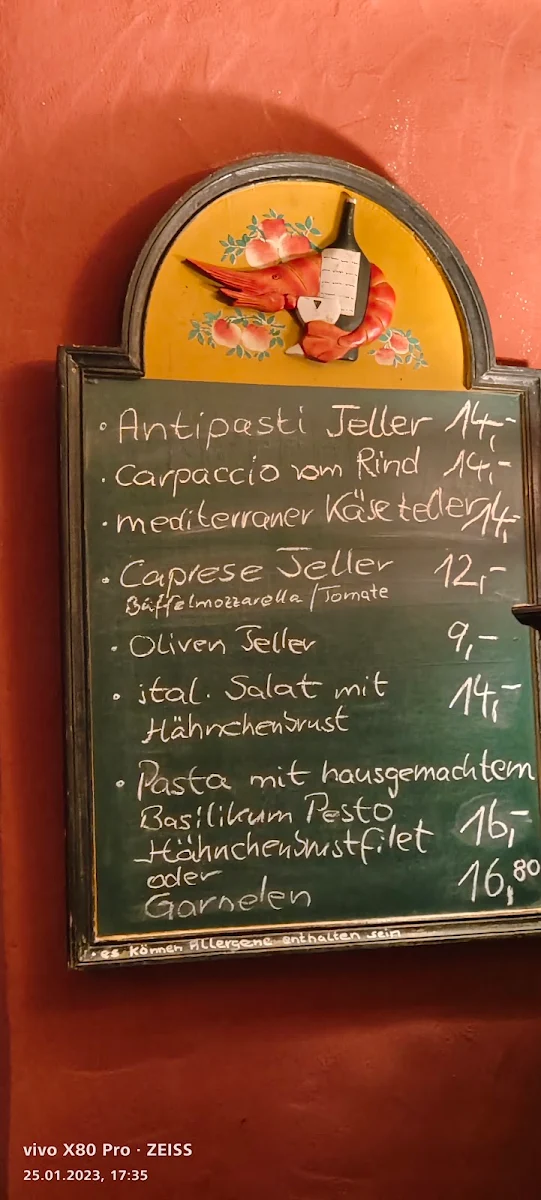 • Antipasti Teller 14,-
• Carpaccio vom Rind 14,-
• mediterraner Käseteller 14,-
• Caprese Teller 12,-
Büffelmozzarella / Tomate
• Oliven Teller 9,-
• ital. Salat mit 14,-
Hähnchenbrust
• Pasta mit hausgemachtem
Basilikum Pesto
Hähnchenbrustfilet 16,-
oder
Garnelen 16,80
• es können Allergene enthalten sein
vivo X80 Pro · ZEISS
25.01.2023, 17:35